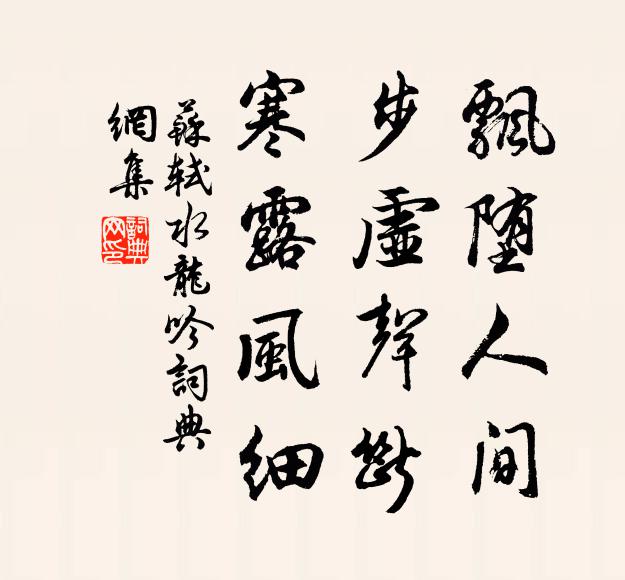 飄墮人間
步虛聲斷
寒露風細
蘇軾水龍吟詞典
網集
詞典
網印